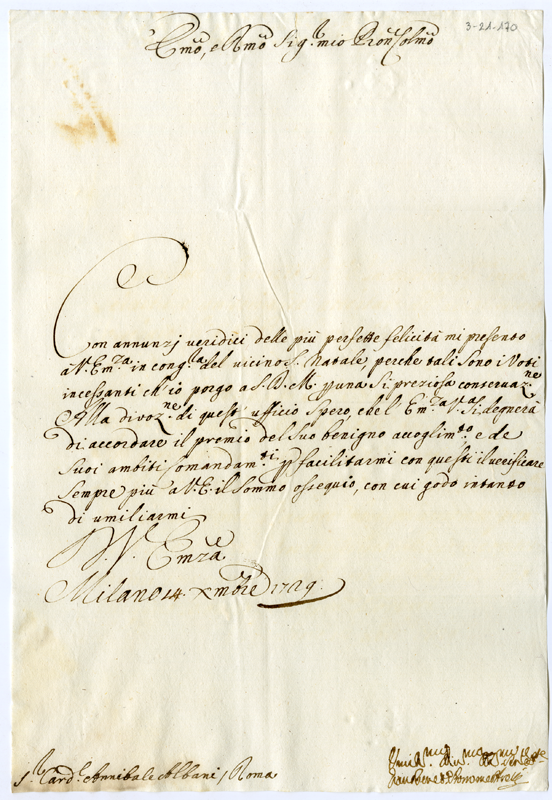 3-21-170
Em.mo, e R.mo Sig.r mio Pron Colmo
Con annunzj veridici delle più perfette felicità mi presento
a V. Em.za in cong.la del vicino S. Natale, perche tali sono i Voti
incessanti ch'io porgo a S. D. M. p una si preziosa conservaz.ne
Alla divoz.ne di quest' uffício spero, che l'Em.za V.a si degnerà
di accordare il premio del suo benigno accoglim.to, e de
suoi ambiti comandam.ti p facilitarmi con questi il verificare
sempre più a V. E. il sommo ossequio, con cui godo intanto
di umiliarmi
D. V. Em.za
Milano 14 Xmbre 1729.
S.r Card.e Annibale Albani / Roma